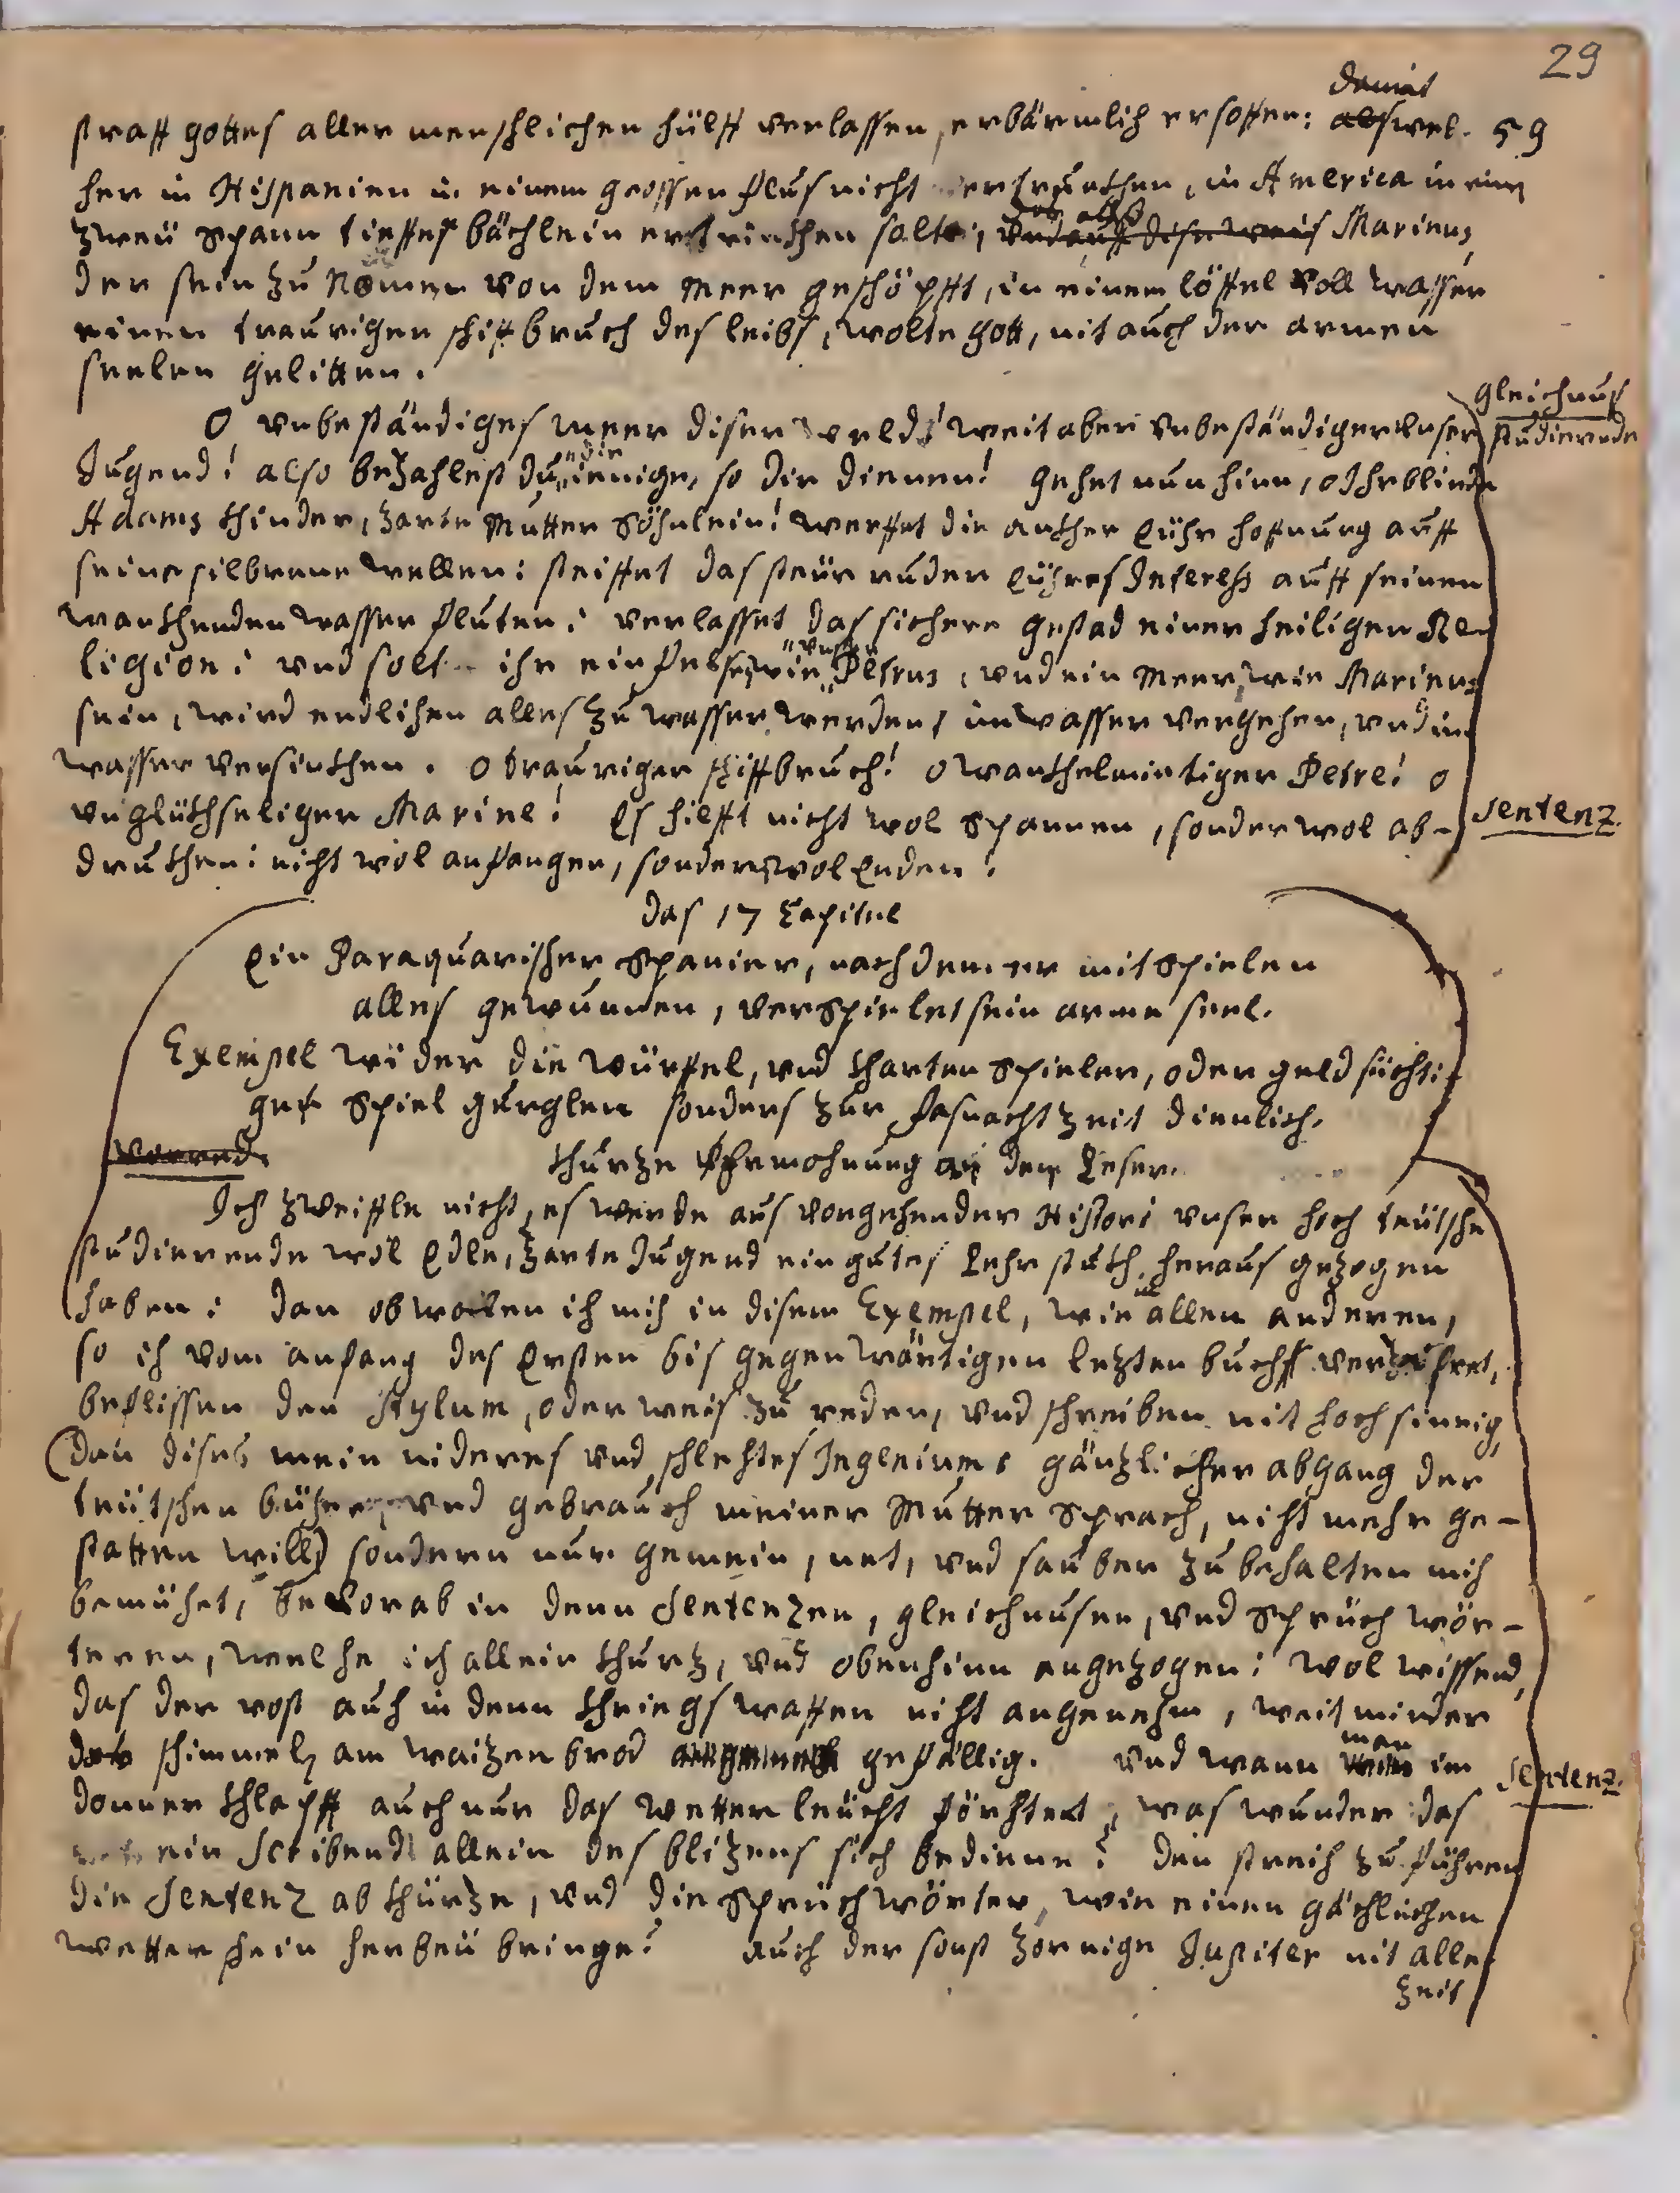 29
damit
straff gottes aller menschlichen hülff verlassen, erbärmlich ersoffen: als wel- 59
cher in Hispanien in einem grossen flus nicht ertruncken, in America in eim
zweü spann tieffes bächlein ertrincken solte; vnd auff dise weis Marinus,
der sein zu Namen von dem Meer geschöpfft, in einem löffel voll wasser
einen traurigen schifbruch des leibs, wolte gott, nit auch der armen
seelen gelitten.
gleichnus
O vnbeständiges meer diser weld! weit aber vnbeständiger vnser studierende
die
Jugend! also bezahlest du ienige, so dir dienen! gehet nun hinn, o Ihr blinde
Adams kinder, zarte Mutter Söhnlein! werffet die ancker Eühr hofnung auff
seine silberne wellen: steiffet das steür ruder Eühres Interess auff seinen
wanckenden wasser fluten: verlasset das sichere gestad einer heiligen Re-
vnser
ligion: vnd solt ihr ein fels, wie Petrus, vnd ein Meer, wie Marinus
sein, wird endlichen alles zu wasser werden, im wasser vergehen, vnd im
wasser versincken. o trauriger schiffbruch! o wanckelmietiger Petre! o
vnglückseliger Marine! Es hiefft nicht wol Spannen, sonder wol ab- Sentenz.
drucken: nicht wol anfangen, sonder wol Enden!
das 17 Capitel
Ein Paraquarischer Spanier, nach dem er mit Spielen
alles gewunnen, verspielet sein arme seel.
Exempel wider die würffel, vnd karten Spieler, oder geld süchti-
ge Spiel gurglen sonders zur fasnacht zeit dienlich.
Vorred. kurze Ermohnung an den Leser.
Ich zweiffle nicht, es werde aus vorgehender Histori vnser hoch teütsche
studierende wol Edle, zarte Jugend ein gutes Lehr stuck heraus gezogen
in
haben: dan obwolen ich mich in disem Exempel, wie allen anderen,
so ich vom anfang des Ersten bis gegenwärtigen letzten buchs
beflissen den Stylum, oder weis zu reden, vnd schreiben nit hochsinnig,
(dan dises mein nideres vnd schlechtes Ingenium, gänzlicher abgang der
teütschen bücher, vnd gebrauch meiner Mutter Sprach, nicht mehr ge-
statten will) sondern nur gemein, net, vnd sauber zu behalten mich
bemühet, bevorab in denn Sentenzen, gleichnusen, vnd Sprüch wör-
teren, welche ich allein kurtz, vnd obenhinn angezogen: wol wissend,
das der rost auch in denn kriegs waffen nicht angenehm, weit minder
man
der schimmel am waizen brod gefällig. vnd wann im Sentenz.
donner klapff auch nur das wetter leücht förchtet, was wunder das
ein Scribend allein des blizens sich bediene? den streich zu führen
die Sentenz abkürze, vnd die Sprüchwörter, wie einen gächlichen
wetter schein herbeü bringe? auch der sonst zornige Jupiter nit alle-
zeit